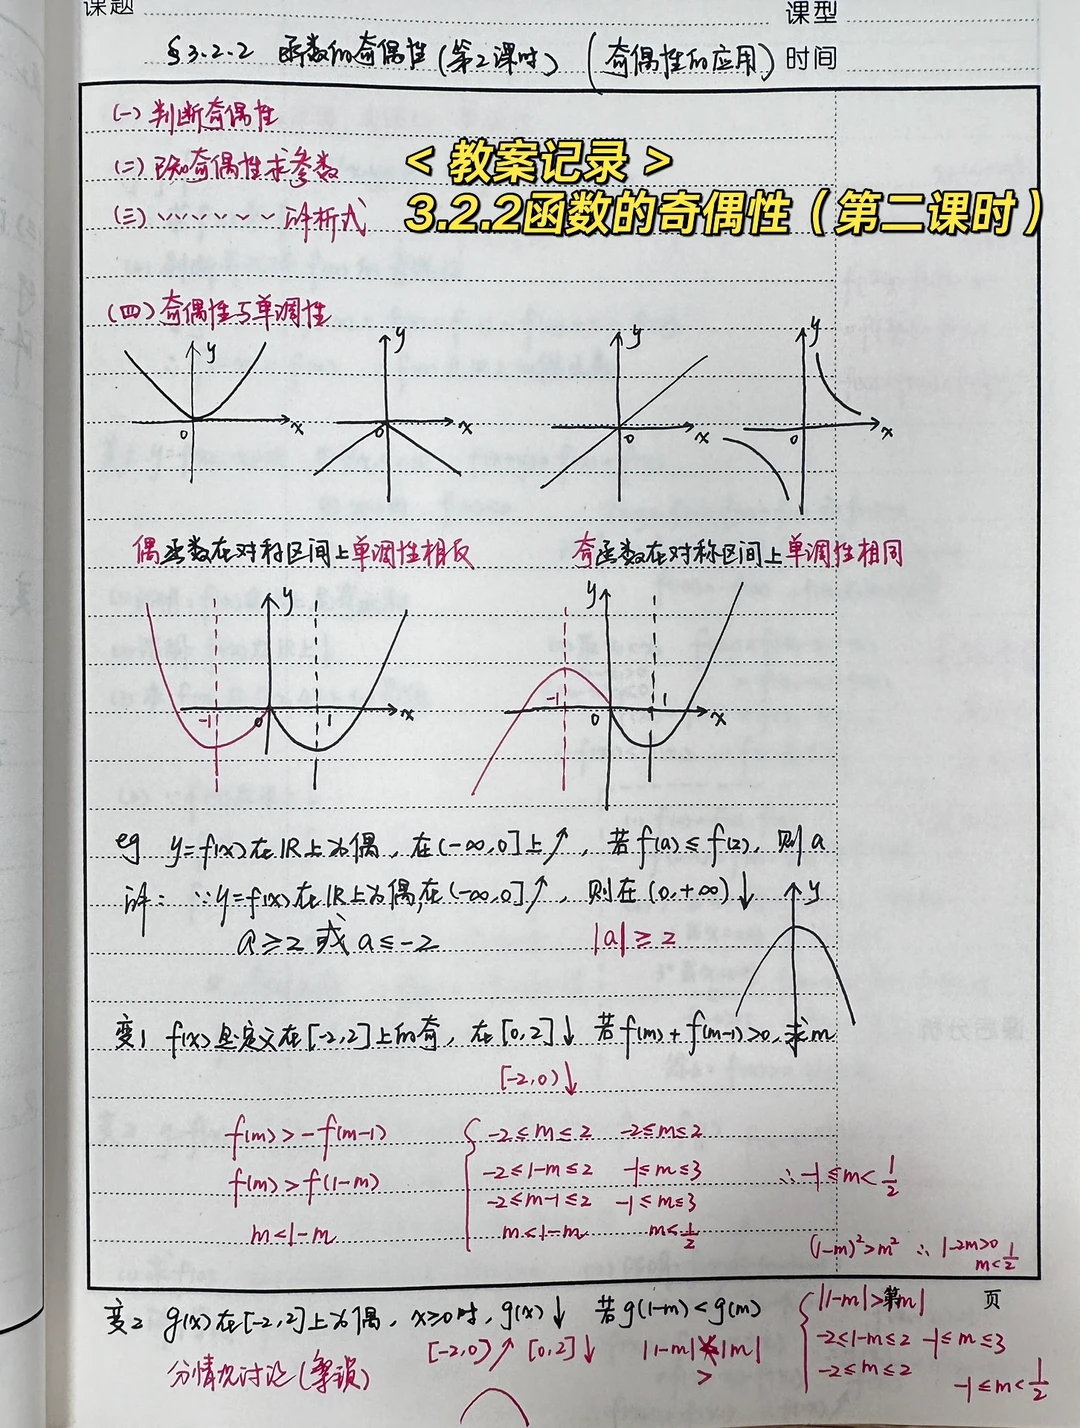 课题
课型
§3.2.2 函数的奇偶性(第2课时) (奇偶性的应用) 时间
(一) 判断奇偶性
(二) 已知奇偶性求参数
(三) 〃 〃 〃 〃 〃 〃 解析式
<教案记录>
3.2.2函数的奇偶性(第二课时)
(四) 奇偶性与单调性
y y y y
0 x 0 x 0 x 0 x
偶函数在对称区间上单调性相反 奇函数在对称区间上单调性相同
y y
-1 0 1 x -1 0 1 x
eg y=f(x)在IR上为偶, 在(-∞,0]上↗, 若f(a)≤f(2), 则a
解: ∵y=f(x)在IR上为偶,在(-∞,0]↗, 则在(0,+∞)↓
y
a≥2 或 a≤-2 |a|≥2
变1 f(x)是定义在[-2,2]上的奇, 在[0,2]↓ 若f(m)+f(m-1)>0, 求m
[-2,0)↓
f(m)>-f(m-1) { -2≤m≤2 -2≤m≤2
f(m)>f(1-m) -2≤1-m≤2 -1≤m≤3 ∴-1≤m<1/2
-2≤m-1≤2 -1≤m≤3
m<1-m m<1-m m<1/2
(1-m)²>m² ∴ 1-2m>0
m<1/2
第 页
变2 g(x)在[-2,2]上为偶, x≥0时, g(x)↓ 若g(1-m)<g(m) { |1-m|>|m|
[-2,0)↗ [0,2]↓ |1-m|<|m| -2≤1-m≤2 -1≤m≤3
分情况讨论(繁琐) > -2≤m≤2
-1≤m<1/2